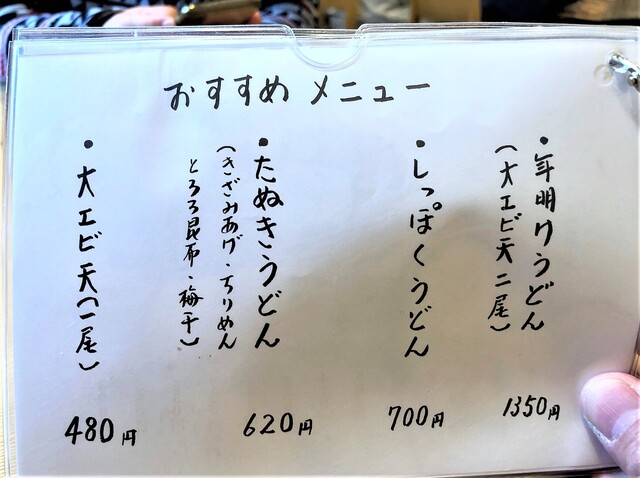 おすすめ メニュー
・年明けうどん
(大エビ天二尾)
1350円
・しっぽくうどん
700円
・たぬきうどん
(きざみあげ・ちりめん
とろろ昆布・梅干)
620円
・大エビ天(一尾)
480円